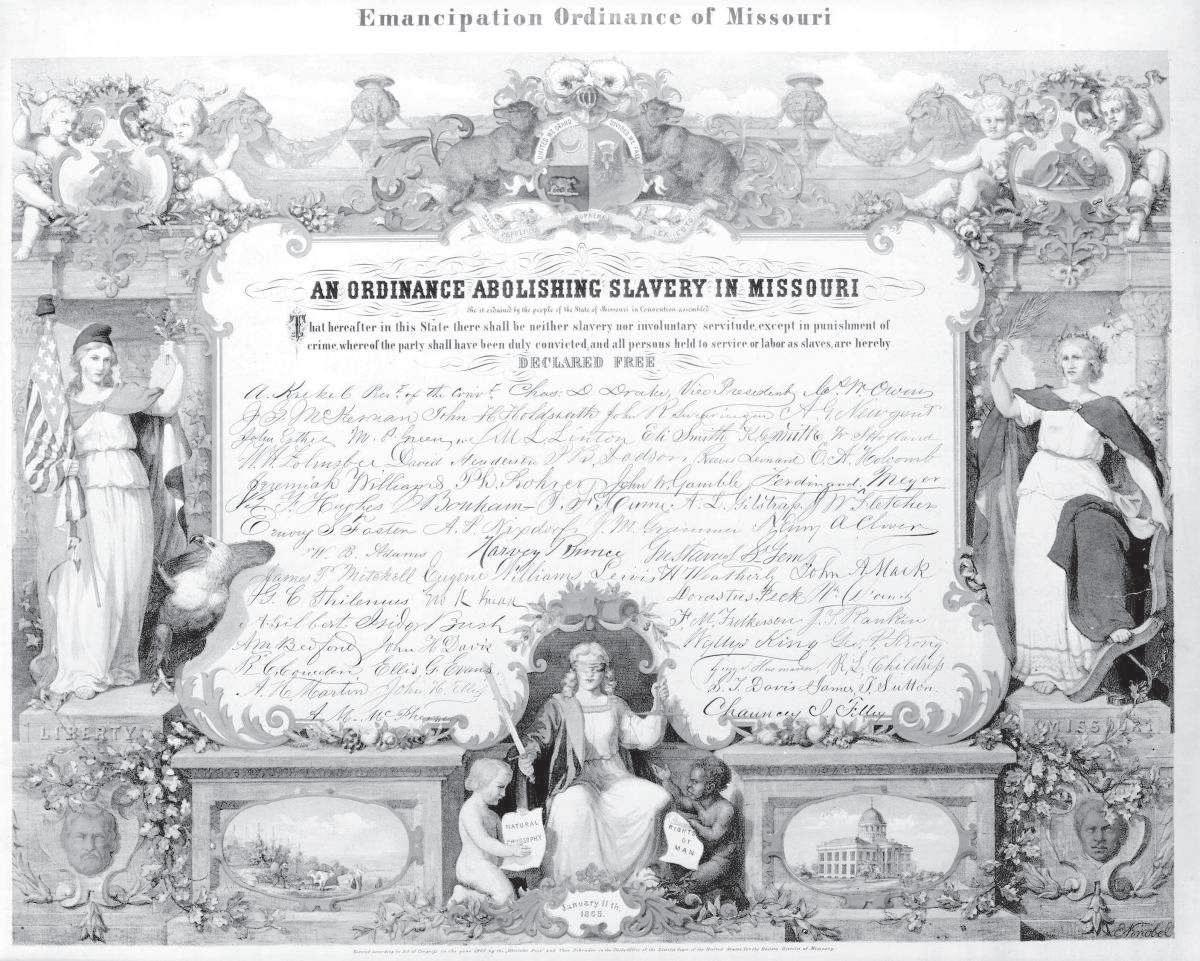 Emancipation Ordinance of Missouri
UNITED WE STAND DIVIDED WE FALL
SALUS POPULI SUPREMA LEX ESTO
AN ORDINANCE ABOLISHING SLAVERY IN MISSOURI
Be it ordained by the people of the State of Missouri in Convention assembled
That hereafter in this State there shall be neither slavery nor involuntary servitude, except in punishment of
crime, whereof the party shall have been duly convicted, and all persons held to service or labor as slaves, are hereby
DECLARED FREE
A. Krekel Pres.t of the Conv.t Chas. D. Drake, Vice President W. Owens
McKernan John H. Holdsworth John R. Swearingen A. G. Newgent
John Esther M. P. Green M. L. Linton Eli Smith K. G. Smith
David Henderson Dodson Reeves Leonard O. H. Holcomb
Jeremiah Williams Ph. Rohrer John W. Gamble Ferdinand Meyer
Hughes D. Bonham A. L. Gilstrap J. W. Fletcher
Emory S. Foster A. P. Nixdorf J. M. Grammer Henry A. Clover
W. B. Adams Harvey Bunce Gustavus St. Gem
James P. Mitchell Eugene Williams Lewis H. Weatherby John A. Mack
G. C. Thilenius Dorastus Peck
A. Gilbert Isidor Bush F. M. Fulkerson J. T. Rankin
A. M. Bedford John H. Davis Wyllys King Geo. P. Strong
B. F. Cowden Ellis G. Evans Husmann R. L. Childress
A. H. Martin John H. Ellis S. T. Davis James T. Sutton
A. M. Chauncey I. Filley
LIBERTY
MISSOURI
NATURAL
PHILOSOPHY
RIGHTS
OF
MAN
January 11th.
1865.
E. Knobel